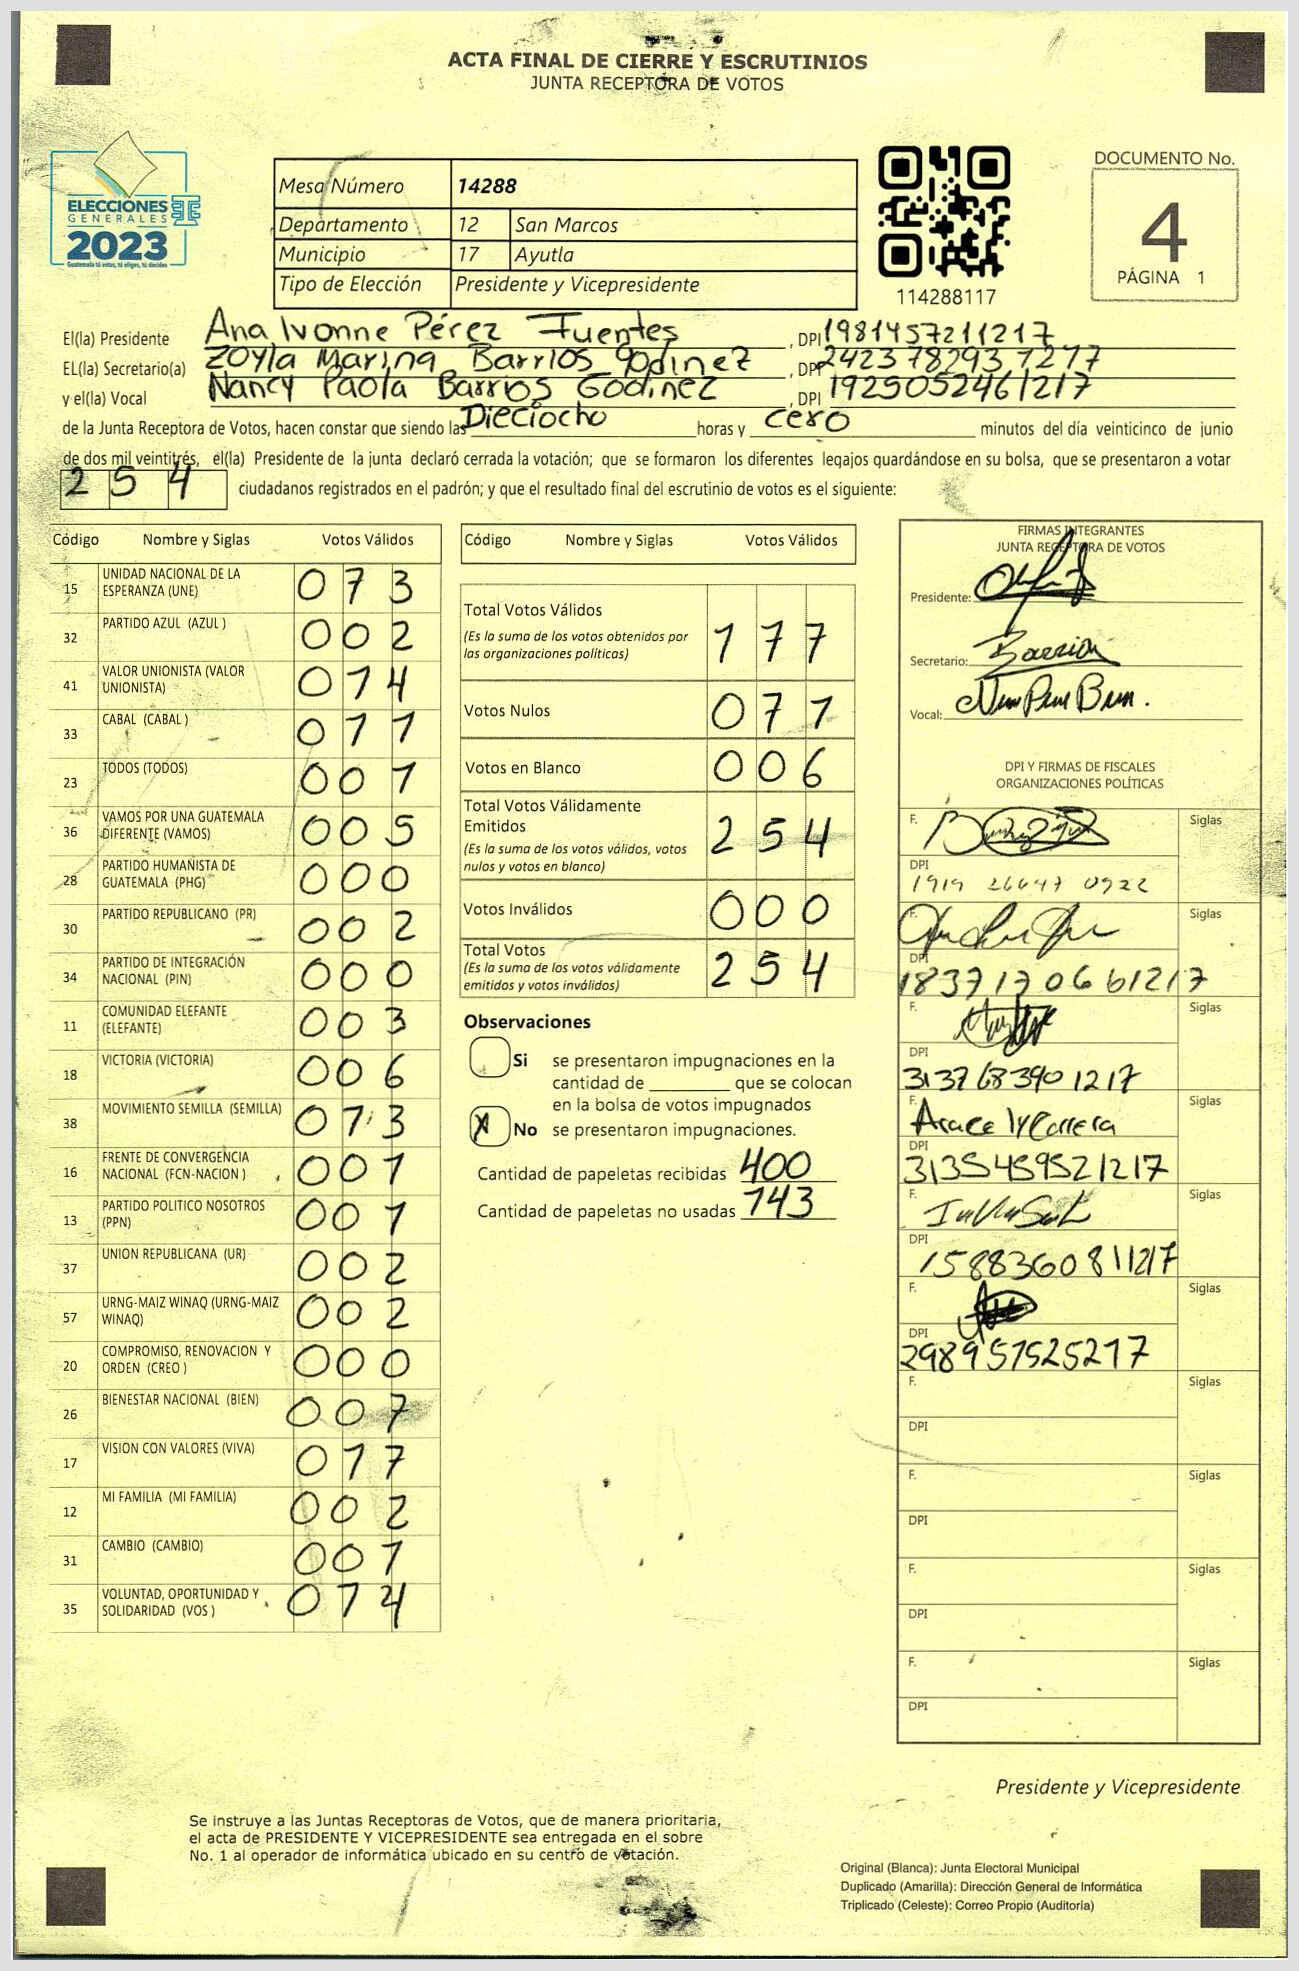 ACTA FINAL DE CIERRE Y ESCRUTINIOS
JUNTA RECEPTORA DE VOTOS
ELECCIONES
GENERALES
2023
Guatemala tú votas, tú eliges, tú decides
Mesa Número 14288
Departamento 12 San Marcos
Municipio 17 Ayutla
Tipo de Elección Presidente y Vicepresidente
114288117
DOCUMENTO No.
4
PÁGINA 1
El(la) Presidente Ana Ivonne Pérez Fuentes, DPI 1981457211217
EL(la) Secretario(a) Zoyla Marina Barrios Godinez, DPI 2423782931217
y el(la) Vocal Nancy Paola Barrios Godinez DPI 1925052461217
de la Junta Receptora de Votos, hacen constar que siendo las Dieciocho horas y cero minutos del día veinticinco de junio
de dos mil veintitrés, el(la) Presidente de la junta declaró cerrada la votación; que se formaron los diferentes legajos guardándose en su bolsa, que se presentaron a votar
254 ciudadanos registrados en el padrón; y que el resultado final del escrutinio de votos es el siguiente:
Código Nombre y Siglas Votos Válidos
15 UNIDAD NACIONAL DE LA ESPERANZA (UNE) 073
32 PARTIDO AZUL (AZUL ) 002
41 VALOR UNIONISTA (VALOR UNIONISTA) 014
33 CABAL (CABAL ) 011
23 TODOS (TODOS) 001
36 VAMOS POR UNA GUATEMALA DIFERENTE (VAMOS) 005
28 PARTIDO HUMANISTA DE GUATEMALA (PHG) 000
30 PARTIDO REPUBLICANO (PR) 002
34 PARTIDO DE INTEGRACIÓN NACIONAL (PIN) 000
11 COMUNIDAD ELEFANTE (ELEFANTE) 003
18 VICTORIA (VICTORIA) 006
38 MOVIMIENTO SEMILLA (SEMILLA) 013
16 FRENTE DE CONVERGENCIA NACIONAL (FCN-NACION ) 001
13 PARTIDO POLITICO NOSOTROS (PPN) 001
37 UNION REPUBLICANA (UR) 002
57 URNG-MAIZ WINAQ (URNG-MAIZ WINAQ) 002
20 COMPROMISO, RENOVACION Y ORDEN (CREO ) 000
26 BIENESTAR NACIONAL (BIEN) 007
17 VISION CON VALORES (VIVA) 017
12 MI FAMILIA (MI FAMILIA) 002
31 CAMBIO (CAMBIO) 001
35 VOLUNTAD, OPORTUNIDAD Y SOLIDARIDAD (VOS ) 014
Código Nombre y Siglas Votos Válidos
Total Votos Válidos 177
(Es la suma de los votos obtenidos por
las organizaciones políticas)
Votos Nulos 071
Votos en Blanco 006
Total Votos Válidamente
Emitidos 254
(Es la suma de los votos válidos, votos
nulos y votos en blanco)
Votos Inválidos 000
Total Votos 254
(Es la suma de los votos válidamente
emitidos y votos inválidos)
Observaciones
Si se presentaron impugnaciones en la
cantidad de ________ que se colocan
en la bolsa de votos impugnados
X No se presentaron impugnaciones.
Cantidad de papeletas recibidas 400
Cantidad de papeletas no usadas 143
FIRMAS INTEGRANTES
JUNTA RECEPTORA DE VOTOS
Presidente:
Secretario: Barrios
Vocal:
DPI Y FIRMAS DE FISCALES
ORGANIZACIONES POLÍTICAS
F. Siglas
DPI
F. Siglas
DPI 1837170661217
F. Siglas
DPI 3137683901217
F. Aracely Carrera Siglas
DPI 3135459521217
F. Siglas
DPI 1588360811217
F. Siglas
DPI 2989515251217
F. Siglas
DPI
F. Siglas
DPI
F. Siglas
DPI
F. Siglas
DPI
Presidente y Vicepresidente
Se instruye a las Juntas Receptoras de Votos, que de manera prioritaria,
el acta de PRESIDENTE Y VICEPRESIDENTE sea entregada en el sobre
No. 1 al operador de informática ubicado en su centro de votación.
Original (Blanca): Junta Electoral Municipal
Duplicado (Amarilla): Dirección General de Informática
Triplicado (Celeste): Correo Propio (Auditoría)